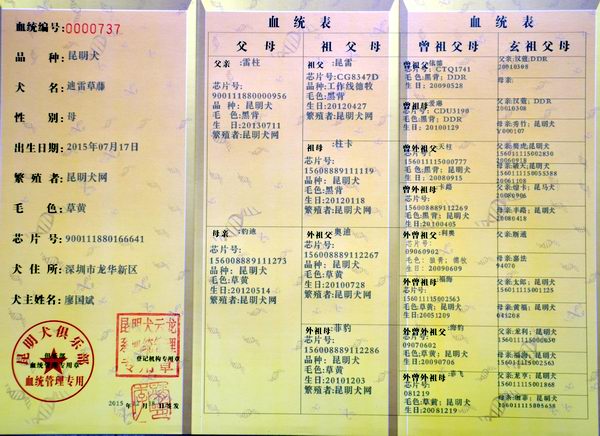 血统编号:0000737
品 种: 昆明犬
犬 名: 迪雷草藤
性 别: 母
出生日期: 2015年07月17日
繁 殖 者: 昆明犬网
毛 色: 草黄
芯 片 号: 900111880166641
犬 住 所: 深圳市龙华新区
犬主姓名: 廖国斌
昆明犬俱乐部
俱乐部
血统管理专用章
血统管理专用
登记机构专用章
血统表
父母
父亲 :雷柱
芯片号:
900111880000956
品 种: 昆明犬
毛 色:黑背
生 日:20130711
繁殖者:昆明犬网
母亲 :豹迪
芯片号:
156008889111273
品 种: 昆明犬
毛 色:草黄
生 日:20120514
繁殖者:昆明犬网
祖父母
祖父 :昆雷
芯片号:CG8347D
品种:工作线德牧
毛色:黑背
生日:20120427
繁殖者:昆明犬网
祖母 :杜卡
芯片号:
156008889111119
品种: 昆明犬
毛色:黑背
生日:20120118
繁殖者:昆明犬网
外祖父 :奥迪
芯片号:
156008889112267
品种: 昆明犬
毛色:草黄
生日:20100728
繁殖者:昆明犬网
外祖母 :菲豹
芯片号:
156008889112286
品种: 昆明犬
毛色:草黄
生日:20101203
繁殖者:昆明犬网
血统表
曾祖父母
曾祖父:依德
芯片号:CTQ1741
毛色:黑背; DDR
生日:20090528
曾祖母:爱塞
芯片号:CDU3190
毛色:黑背; DDR
生日:20100129
曾外祖父:天柱
芯片号:
156011115000777
毛色:黑背; 昆明犬
生日: 20080915
曾外祖母:卡路
芯片号:
156008889112269
毛色:黑背; 昆明犬
生日:20100405
外曾祖父:阿奥
芯片号:
09060902
毛色: 狼青; 德牧
生日: 20090609
外曾祖母:福海
芯片号:
156011115002563
毛色:草黄; 昆明犬
生日:20051209
外曾外祖父:海豹
芯片号:
09070602
毛色:草黄; 昆明犬
生日:20090706
外曾外祖母:菲飞
芯片号:
081219
毛色:草黄; 昆明犬
生日:20081219
玄祖父母
父亲:汉菔; DDR
20080308
母亲:
父亲:汉菔; DDR
20080308
母亲:秀竹; 昆明犬
Y000107
父亲:癸虎;昆明犬
156011115002830
20060918
母亲:破天;昆明犬
156011115053388
20061108
20080906
母亲:半路; 昆明犬
20080418
父亲:刚通
母亲:嘉法
94070
父亲:太郎; 昆明犬
156011115001125
母亲:黄福; 昆明犬
045208
父亲:龙利; 昆明犬
156011115001265
父亲:龙亨; 昆明犬
156011115001868
母亲:咖菲; 昆明犬
156011115005658